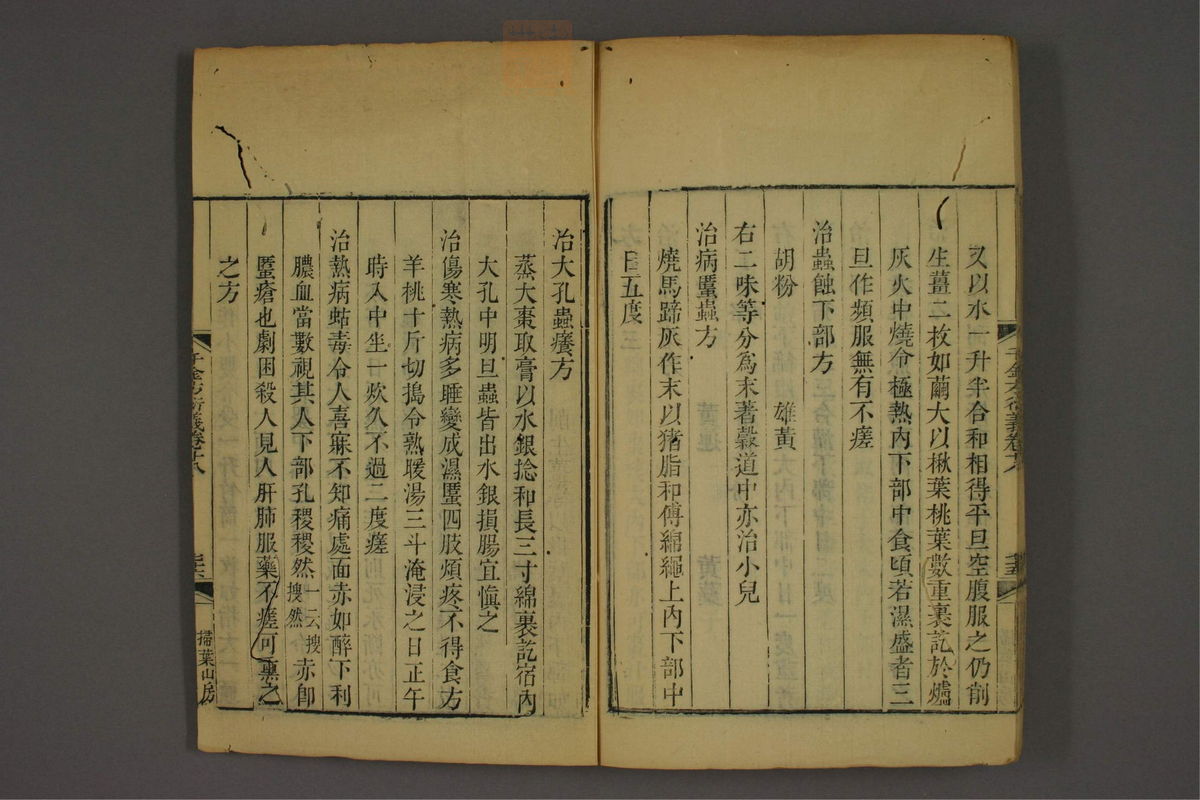 又以水一升半合和相得平旦空腹服之仍削
生薑二枚如繭大以楸葉桃葉數重裹訖於煻
灰火中燒令極熱內下部中食頃若濕盛者三
旦作頻服無有不瘥
治蟲蝕下部方
胡粉 雄黃
右二味等分爲末著穀道中亦治小兒
治病䘌蟲方
燒馬蹄灰作末以猪脂和傅綿繩上內下部中
日五度
千金方衍義卷十八
治大孔蟲癢方
蒸大棗取膏以水銀捻和長三寸綿裹訖宿內
大孔中明旦蟲皆出水銀損腸宜愼之
治傷寒熱病多睡變成濕䘌四肢煩疼不得食方
羊桃十斤切搗令熟暖湯三斗淹浸之日正午
時入中坐一炊久不過二度瘥
治熱病蛄毒令人喜寐不知痛處面赤如醉下利
膿血當數視其人下部孔稷稷然一云搜搜然赤卽
䘌瘡也劇困殺人見人肝肺服藥不瘥可熏之
之方
千金方衍義卷十八
掃葉山房